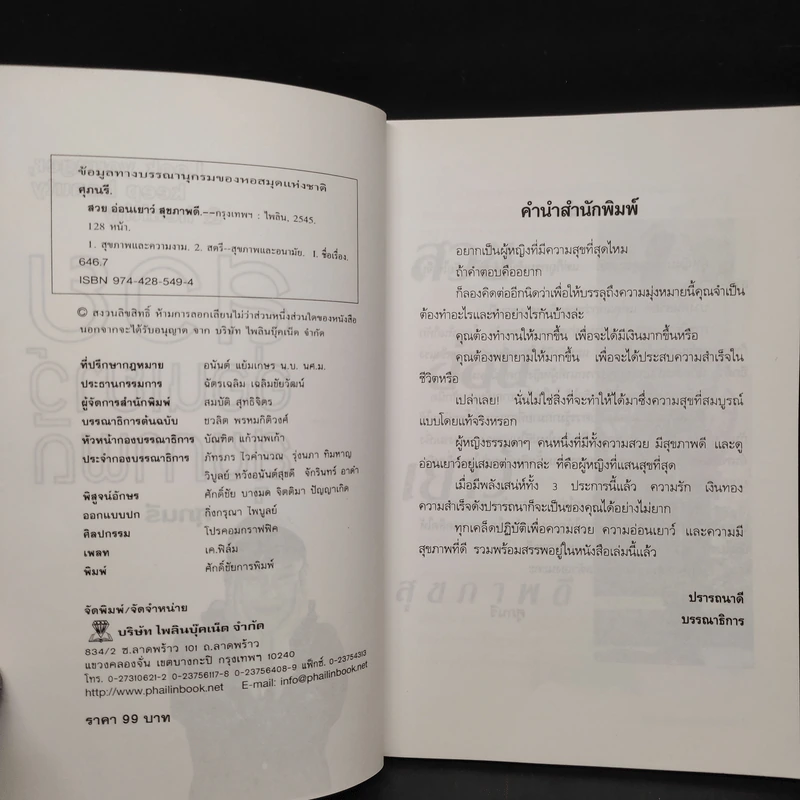 ข้อมูลทางบรรณานุกรมของหอสมุดแห่งชาติ
ศุภนรี.
สวย อ่อนเยาว์ สุขภาพดี.--กรุงเทพฯ : ไพลิน, 2545.
128 หน้า.
1. สุขภาพและความงาม. 2. สตรี--สุขภาพและอนามัย. I. ชื่อเรื่อง.
646.7
ISBN 974-428-549-4
© สงวนลิขสิทธิ์ ห้ามการลอกเลียนไม่ว่าส่วนหนึ่งส่วนใดของหนังสือ
นอกจากจะได้รับอนุญาต จาก บริษัท ไพลินบุ๊คเน็ต จำกัด
ที่ปรึกษากฎหมาย อนันต์ แย้มเกษร น.บ. นศ.ม.
ประธานกรรมการ ฉัตรเฉลิม เฉลิมชัยวัฒน์
ผู้จัดการสำนักพิมพ์ สมบัติ สุทธิจิตร
บรรณาธิการต้นฉบับ ชวลิต พรหมกิติวงศ์
หัวหน้ากองบรรณาธิการ บัณฑิต แก้วนพเก้า
ประจำกองบรรณาธิการ ภัทรภร ไวคำนวณ รุ่งนภา ทิมหาญ
วิบูลย์ หวังอนันต์สุขดี จักรินทร์ อาดำ
พิสูจน์อักษร ศักดิ์ชัย บางมด จิตติมา ปัญญาเกิด
ออกแบบปก กิ่งกรุณา ไพบูลย์
ศิลปกรรม โปรคอมกราฟฟิค
เพลท เค.ฟิล์ม
พิมพ์ ศักดิ์ชัยการพิมพ์
จัดพิมพ์/จัดจำหน่าย
บริษัท ไพลินบุ๊คเน็ต จำกัด
834/2 ซ.ลาดพร้าว 101 ถ.ลาดพร้าว
แขวงคลองจั่น เขตบางกะปิ กรุงเทพฯ 10240
โทร. 0-27310621-2 0-23756117-8 0-23756408-9 แฟ็กซ์. 0-23754313
http://www.phailinbook.net E-mail: info@phailinbook.net
ราคา 99 บาท
คำนำสำนักพิมพ์
อยากเป็นผู้หญิงที่มีความสุขที่สุดไหม
ถ้าคำตอบคืออยาก
ก็ลองคิดต่ออีกนิดว่าเพื่อให้บรรลุถึงความมุ่งหมายนี้คุณจำเป็น
ต้องทำอะไรและทำอย่างไรกันบ้างล่ะ
คุณต้องทำงานให้มากขึ้น เพื่อจะได้มีเงินมากขึ้นหรือ
คุณต้องพยายามให้มากขึ้น เพื่อจะได้ประสบความสำเร็จใน
ชีวิตหรือ
เปล่าเลย! นั่นไม่ใช่สิ่งที่จะทำให้ได้มาซึ่งความสุขที่สมบูรณ์
แบบโดยแท้จริงหรอก
ผู้หญิงธรรมดาๆ คนหนึ่งที่มีทั้งความสวย มีสุขภาพดี และดู
อ่อนเยาว์อยู่เสมอต่างหากล่ะ ที่คือผู้หญิงที่แสนสุขที่สุด
เมื่อมีพลังเสน่ห์ทั้ง 3 ประการนี้แล้ว ความรัก เงินทอง
ความสำเร็จดังปรารถนาก็จะเป็นของคุณได้อย่างไม่ยาก
ทุกเคล็ดปฏิบัติเพื่อความสวย ความอ่อนเยาว์ และความมี
สุขภาพที่ดี รวมพร้อมสรรพอยู่ในหนังสือเล่มนี้แล้ว
ปรารถนาดี
บรรณาธิการ